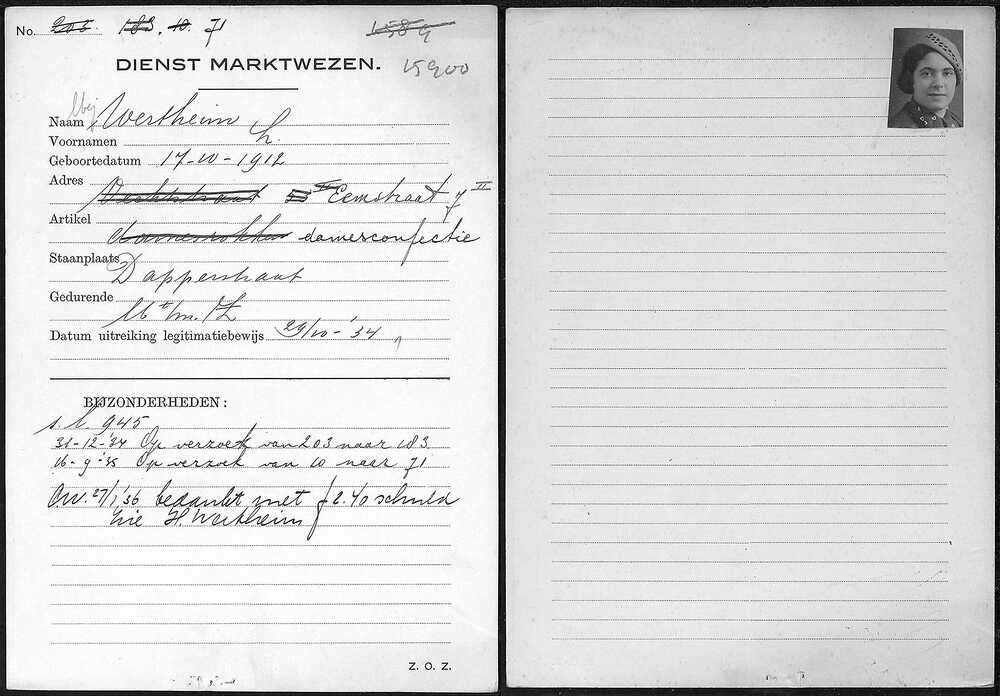 No. 203. 183. 10. 71 1589
DIENST MARKTWEZEN. 15900
Naam Mej Wertheim
Voornamen L.
Geboortedatum 17-10-1912
Adres
Eemstraat 7 II
Artikel
damesrokken damesconfectie
Staanplaats
Dapperstraat
Gedurende
M t/m. Z
Datum uitreiking legitimatiebewijs 29/10-'34
BIJZONDERHEDEN:
s.l. 945
31-12-'34 Op verzoek van 203 naar 183
16-9-'35 Op verzoek van 10 naar 71
O.W. 27/1 '36 bedankt met f 2.40 schuld
Zie H. Wertheim
Z. O. Z.